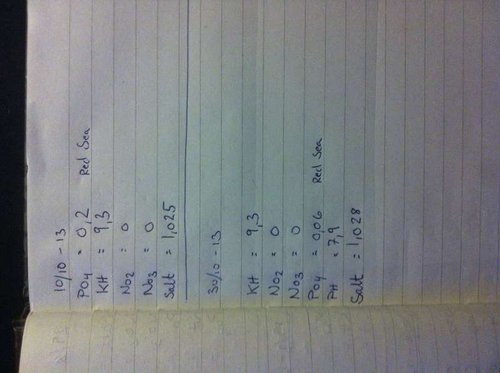 10/10-13
PO4 = 0,2 Red Sea
KH = 9,3
NO2 = 0
NO3 = 0
Salt = 1,025
30/10-13
KH = 9,3
NO2 = 0
NO3 = 0
PO4 = 0,06 Red Sea
PH = 7,9
Salt = 1,028